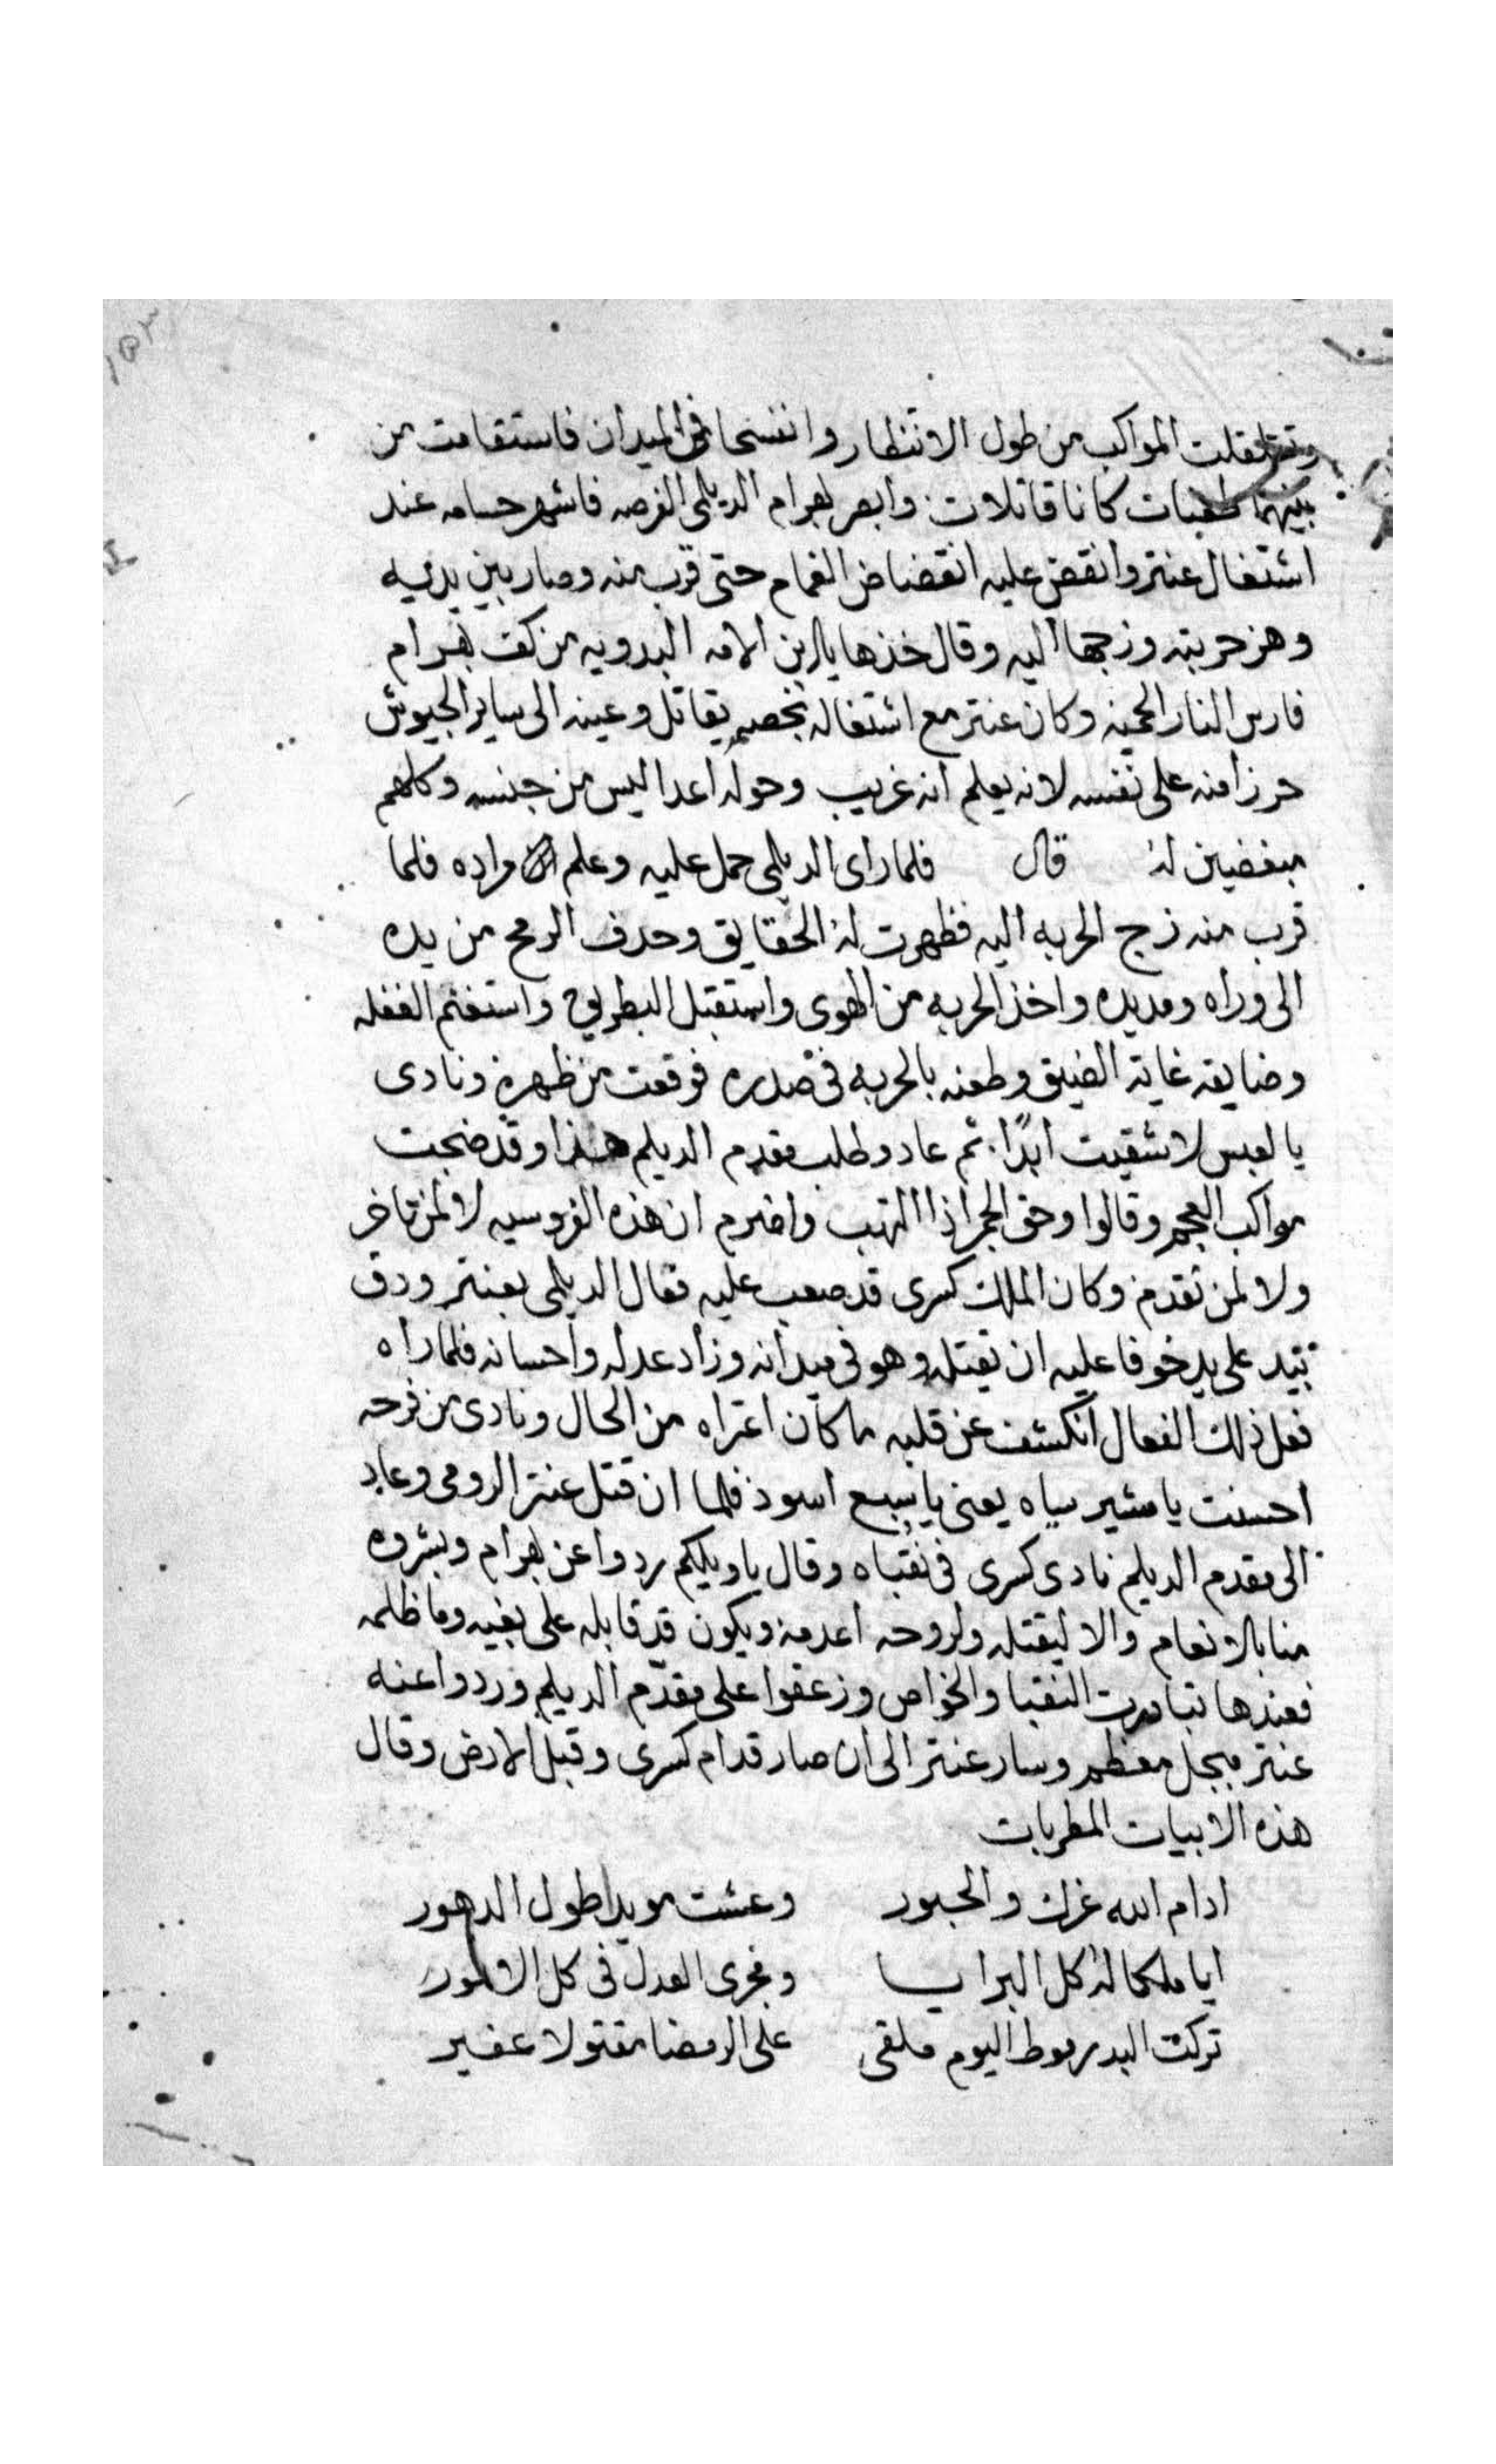 ١٥٣
وتقلقلت المواكب من طول الانتظار وانفسحا في الميدان فاستقامت من
بينهما طعنات كانا قاتلات وابصر بهرام الديلمى الفرصه فاشهر حسامه عند
اشتغال عنتر وانقض عليه انقضاض الغمام حتى قرب منه وصار بين يديه
وهز حربته وزجها اليه وقال خذها يا ابن الامه البدويه من كف بهرام
فارس النار المحميه وكان عنتر مع اشتغاله بخصمه يقاتل وعينه الى ساير الجيوش
حرزا منه على نفسه لانه يعلم انه غريب وحوله اعدا ليس من جنسه وكلهم
مبغضين له قال فلما راى الديلمى حمل عليه وعلم مراده فلما
قرب منه زج الحربه اليه فظهرت له الحقايق وحدف الرمح من يده
الى وراه ومد يده واخذ الحربه من الهوى واستقبل البطريق واستغنم الغفله
وضايقه غاية الضيق وطعنه بالحربه في صدره فوقعت من ظهره ونادى
يا لعبس لا شقيت ابدًا ثم عاد وطلب مقدم الديلم هذا وقد ضجت
مواكب العجم وقالوا وحق الجمر اذا التهب واضرم ان هذه الفروسيه لا لمن تاخر
ولا لمن تقدم وكان الملك كسرى قد صعب عليه فعال الديلمى بعنتر ودق
بيد على يد خوفا عليه ان يقتله وهو في ميدانه وزاد عدله واحسانه فلما راه
فعل ذلك الفعال انكشف عن قلبه ما كان اعتراه من الحال ونادى من فرحه
احسنت يا مشير سياه يعنى يا سبع اسود فلما ان قتل عنتر الرومى وعاد
الى مقدم الديلم نادى كسرى في نقباه وقال يا ويلكم ردوا عن بهرام وبشروه
منا بالانعام والا ليقتله ولروحه اعدمه ويكون قد قابله على بغيه وما ظلمه
فعندها تبادرت النقبا والخواص وزعقوا على مقدّم الديلم وردوا عنه
عنتر مبجل معظم وسار عنتر الى ان صار قدام كسرى وقبل الارض وقال
هذه الابيات المطربات
ادام الله عزك والحبور وعشت مويدا طول الدهور
ايا ملكا له كل البرايا ومجرى العدل في كل الامور
تركت البدرموط اليوم ملقى على الرمضا مقتولا عفير